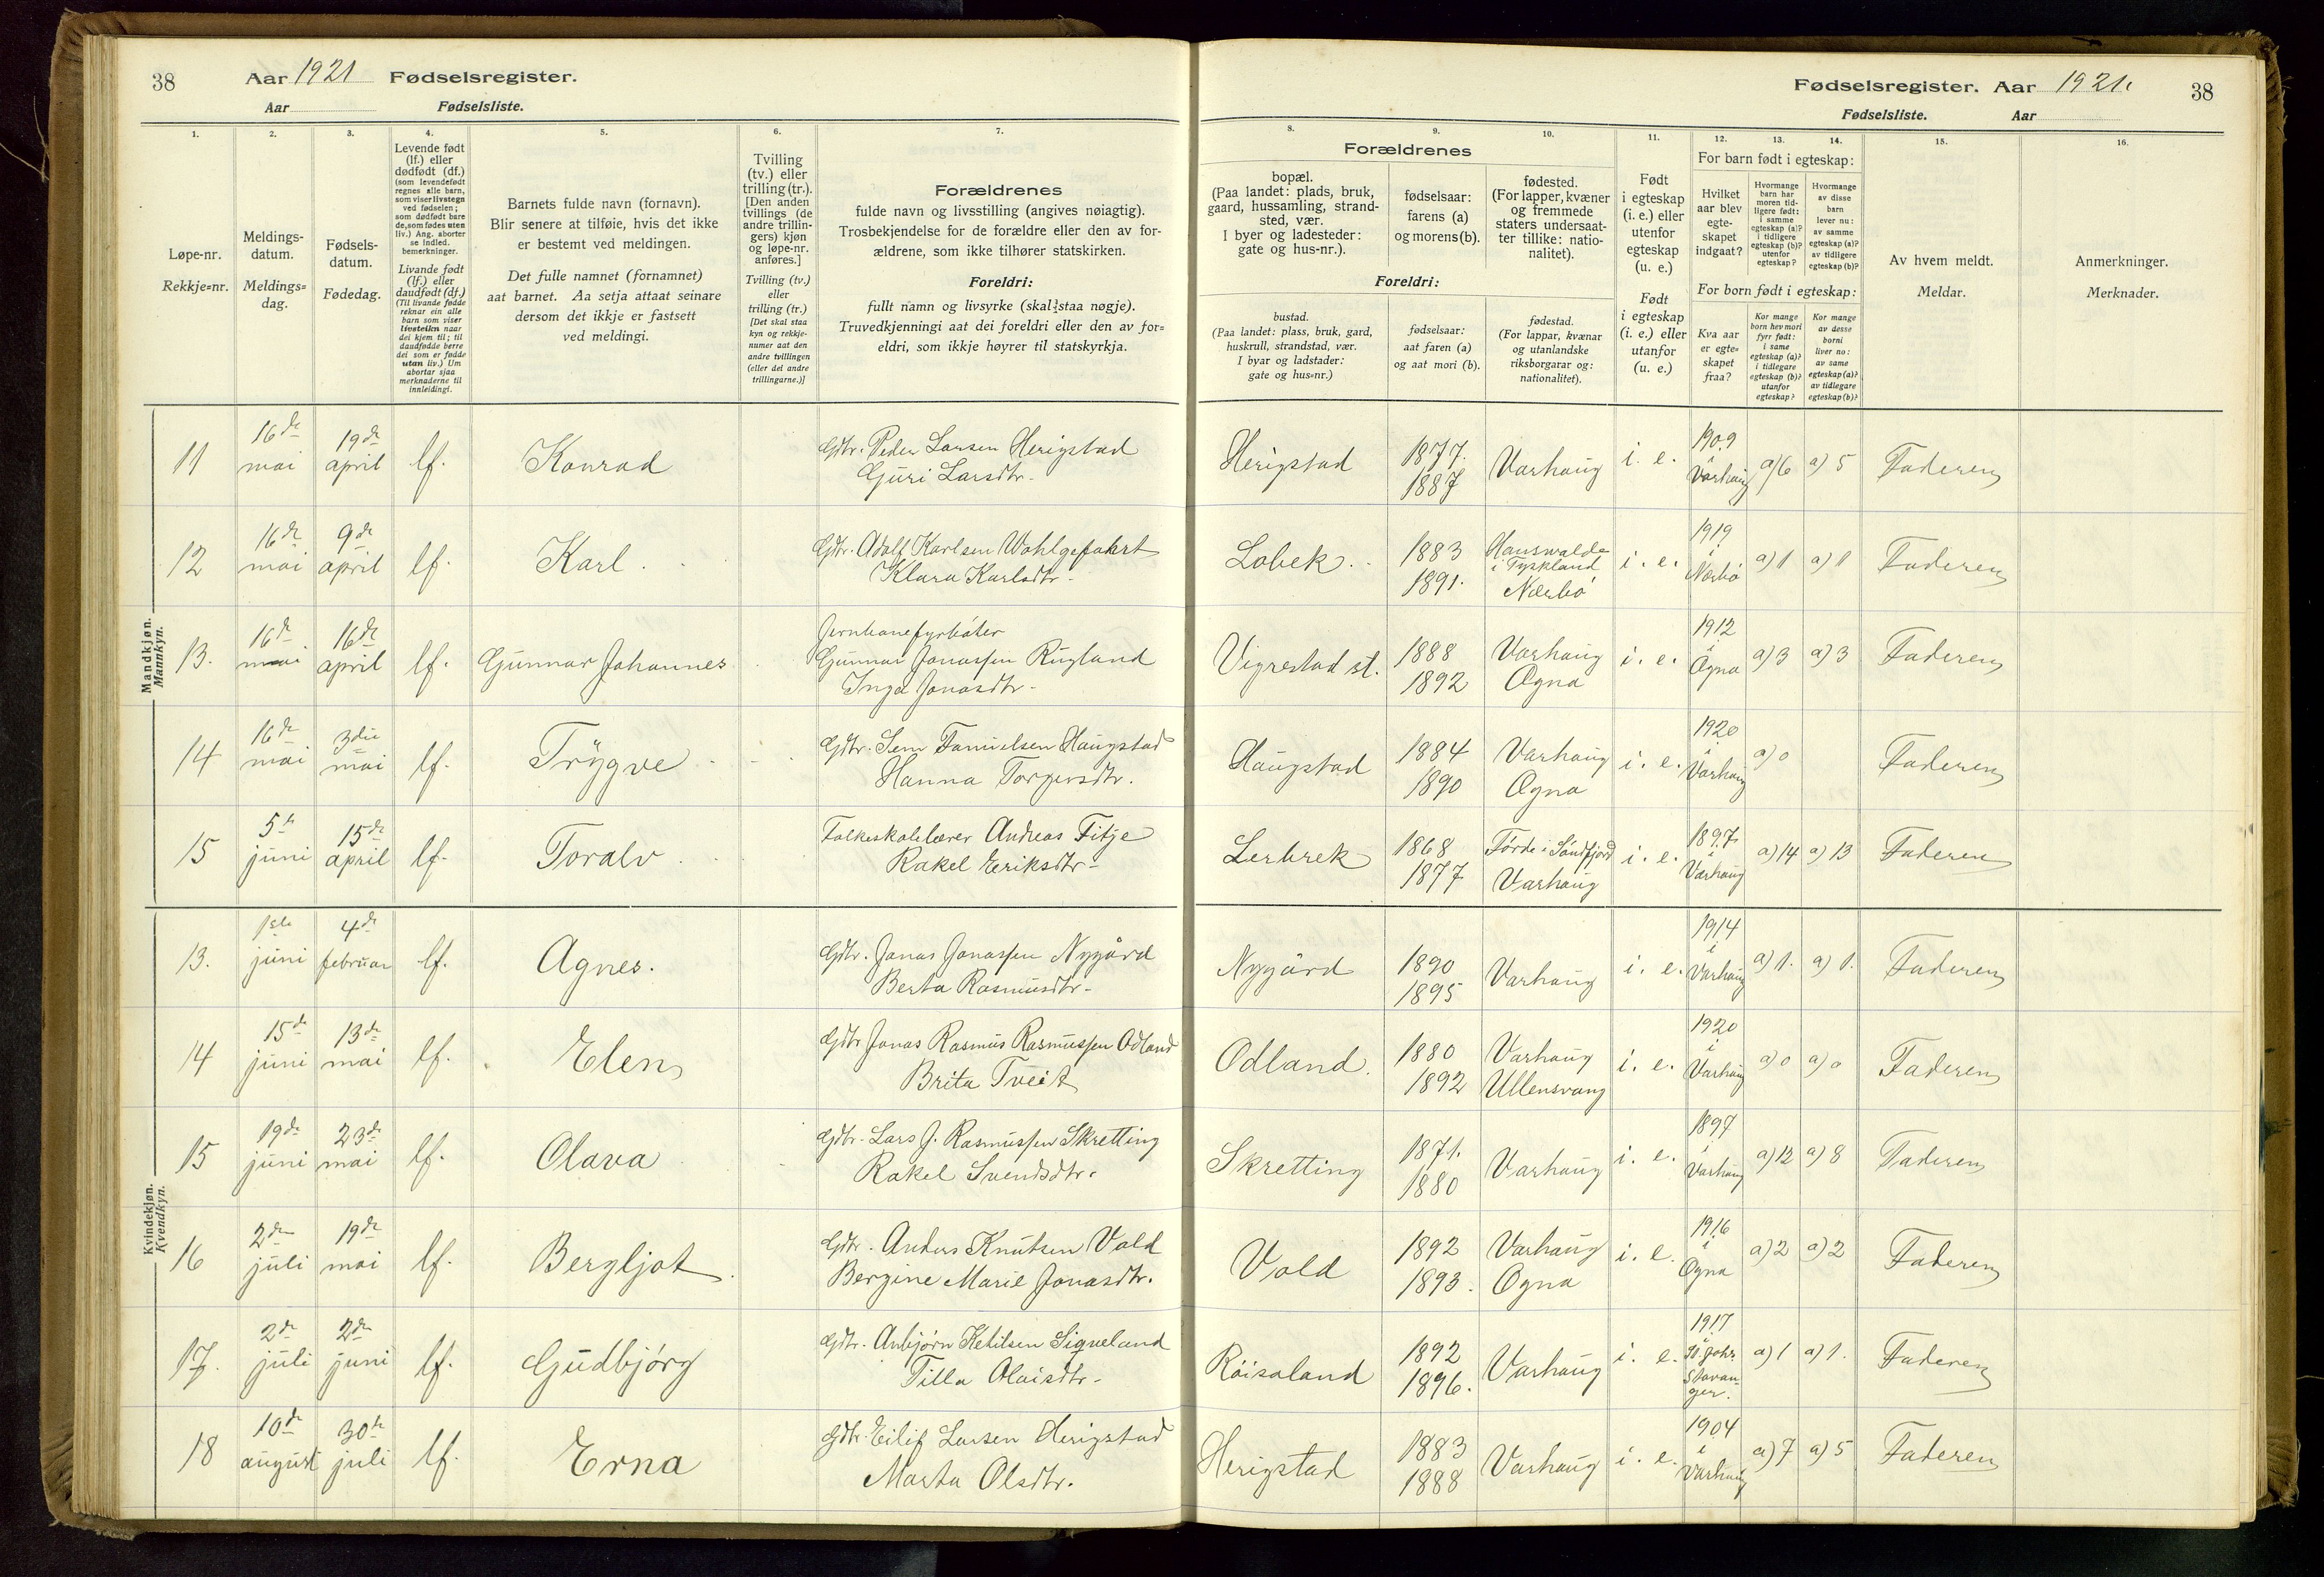 38 Aar 1921 Fødselsregister.
Aar Fødselsliste.
1. 2. 3. 4. 5. 6. 7.
Løpe-nr.
Rekkje=nr.
Meldings-
datum.
Meldings=
dag.
Fødsels-
datum.
Fødedag.
Levende født
(lf.) eller
dødfødt (df.)
(som levendefødt
regnes alle barn,
som viser livstegn
ved fødselen;
som dødfødt bare
de, som fødes uten
liv.) Ang. aborter
se indled.
bemerkninger.
Livande født
(lf.) eller
daudfødt (df.)
(Til livande fødde
reknar ein alle
barn som viser
livsteikn naar
dei kjem til; til
daudfødde berre
dei som er fødde
utan liv.) Um
abortar sjaa
merknaderne til
innleidingi.
Barnets fulde navn (fornavn).
Blir senere at tilføie, hvis det ikke
er bestemt ved meldingen.
Det fulle namnet (fornamnet)
aat barnet. Aa setja attaat seinare
dersom det ikkje er fastsett
ved meldingi.
Tvilling
(tv.) eller
trilling (tr.).
[Den anden
tvillings (de
andre trillin-
gers) kjøn
og løpe-nr.
anføres.]
Tvilling (tv.)
eller
trilling (tr.)
[Det skal staa
kyn og rekkje-
numer aat den
andre tvillingen
(eller dei andre
trillingarne.)]
Forældrenes
fulde navn og livsstilling (angives nøiagtig).
Trosbekjendelse for de forældre eller den av for-
ældrene, som ikke tilhører statskirken.
Foreldri:
fullt namn og livsyrke (skal staa nøgje).
Truvedkjenningi aat dei foreldri eller den av for=
eldri, som ikkje høyrer til statskyrkja.
Mandkjøn.
Mannkyn.
11 16de mai 19de april lf. Konrad Gdbr. Peder Larsen Herigstad
Guri Larsdtr.
12 16de mai 9de april lf. Karl. Gdbr. Adolf Karlsen Wohlgefahrt
Klara Karlsdtr.
13. 16de mai 16de april lf. Gunnar Johannes Jernbanefyrbøter
Gunnar Jonassen Rugland
Inga Jonasdtr.
14 16de mai 3die mai lf. Trygve Gdbr. Sem Haugstad
Hanna Torgersdtr.
15 5te juni 15de april lf. Toralv Folkeskolelærer Andreas Fitje
Rakel Eriksdtr.
Kvindekjøn.
Kvendkyn.
13. 1ste juni 4de februar lf. Agnes. Gdbr. Jonas Jonassen Nygård
Berta Rasmusdtr.
14 15de juni 13de mai lf. Elen Gdbr Jonas Rasmus Rasmussen Odland
Brita Tveit
15 19de juni 23de mai lf. Olava Gdbr. Lars J. Rasmussen Skretting
Rakel Svendsdtr.
16 2den juli 19de mai lf. Bergljot Gdbr. Anders Knutsen Vold
Bergine Marie Jonasdtr.
17. 2den juli 2den juni lf. Gudbjørg Gdbr. Anbjørn Ketilsen Sigveland
Tilla Olaisdtr.
18 10de august 30te juli lf. Erna Gdbr. Eilif Larsen Herigstad
Marta Olsdtr.
Fødselsregister. Aar 1921. 38
Fødselsliste. Aar
8. 9. 10. 11. 12. 13. 14. 15. 16.
Forældrenes
bopæl.
(Paa landet: plads, bruk,
gaard, hussamling, strand-
sted, vær.
I byer og ladesteder:
gate og hus-nr.).
fødselsaar:
farens (a)
og morens (b).
fødested.
(For lapper, kvæner
og fremmede
staters undersaat-
ter tillike: natio-
nalitet).
Foreldri:
bustad.
(Paa landet: plass, bruk, gard,
huskrull, strandstad, vær.
I byar og ladstader:
gate og hus=nr.)
fødselsaar:
aat faren (a)
og aat mori (b).
fødestad.
(For lappar, kvænar
og utanlandske
riksborgarar og:
nationalitet).
Født
i egteskap
(i. e.) eller
utenfor
egteskap
(u. e.)
Født
i egteskap
(i. e.) eller
utanfor
(u. e.)
For barn født i egteskap:
Hvilket
aar blev
egte-
skapet
indgaat?
Hvormange
barn har
moren tid-
ligere født:
i samme
egteskap (a)?
i tidligere
egteskap (b)?
utenfor
egteskap?
Hvormange
av disse
barn
lever nu:
av samme
egteskap (a)?
av tidligere
egteskap (b)?
For born født i egteskap:
Kva aar
er egte=
skapet
fraa?
Kor mange
born hev mori
fyrr født:
i same
egteskap (a)?
i tidlegare
egteskap (b)?
utanfor
egteskap?
Kor mange
av desse
borni
liver no:
av same
egteskap (a)?
av tidlegare
egteskap (b)?
Av hvem meldt.
Meldar.
Anmerkninger.
Merknader.
Herigstad 1877. 1887 Varhaug i. e. 1909 i Varhaug a) 6 a) 5 Faderen
Lobek. 1883 1891. Hanswalde i Tyskland Nærbø i. e. 1919 i Nærbø a) 1 a) 1 Faderen
Vigrestad st. 1888 1892 Varhaug Ogna i. e. 1912 i Ogna a) 3 a) 3 Faderen
Haugstad 1884 1890 Varhaug Ogna i. e. 1920 i Varhaug a) 0 Faderen
Lerbrek 1868 1877 Førde i Søndfjord Varhaug i. e. 1897 i Varhaug a) 14 a) 13 Faderen
Nygård 1890 1895 Varhaug i. e. 1914 i Varhaug a) 1. a) 1. Faderen
Odland. 1880 1892 Varhaug Ullensvang i. e. 1920 i Varhaug a) 0 a) 0 Faderen
Skretting 1871. 1880 Varhaug i. e. 1897 i Varhaug a) 12 a) 8 Faderen
Vold 1892 1893. Varhaug Ogna i. e. 1916 i Ogna a) 2 a) 2 Faderen
Røisaland 1892 1896. Varhaug i. e. 1917 i St. Joh. Stavanger. a) 1 a) 1. Faderen
Herigstad 1883 1888 Varhaug i. e. 1904 i Varhaug a) 7 a) 5 Faderen